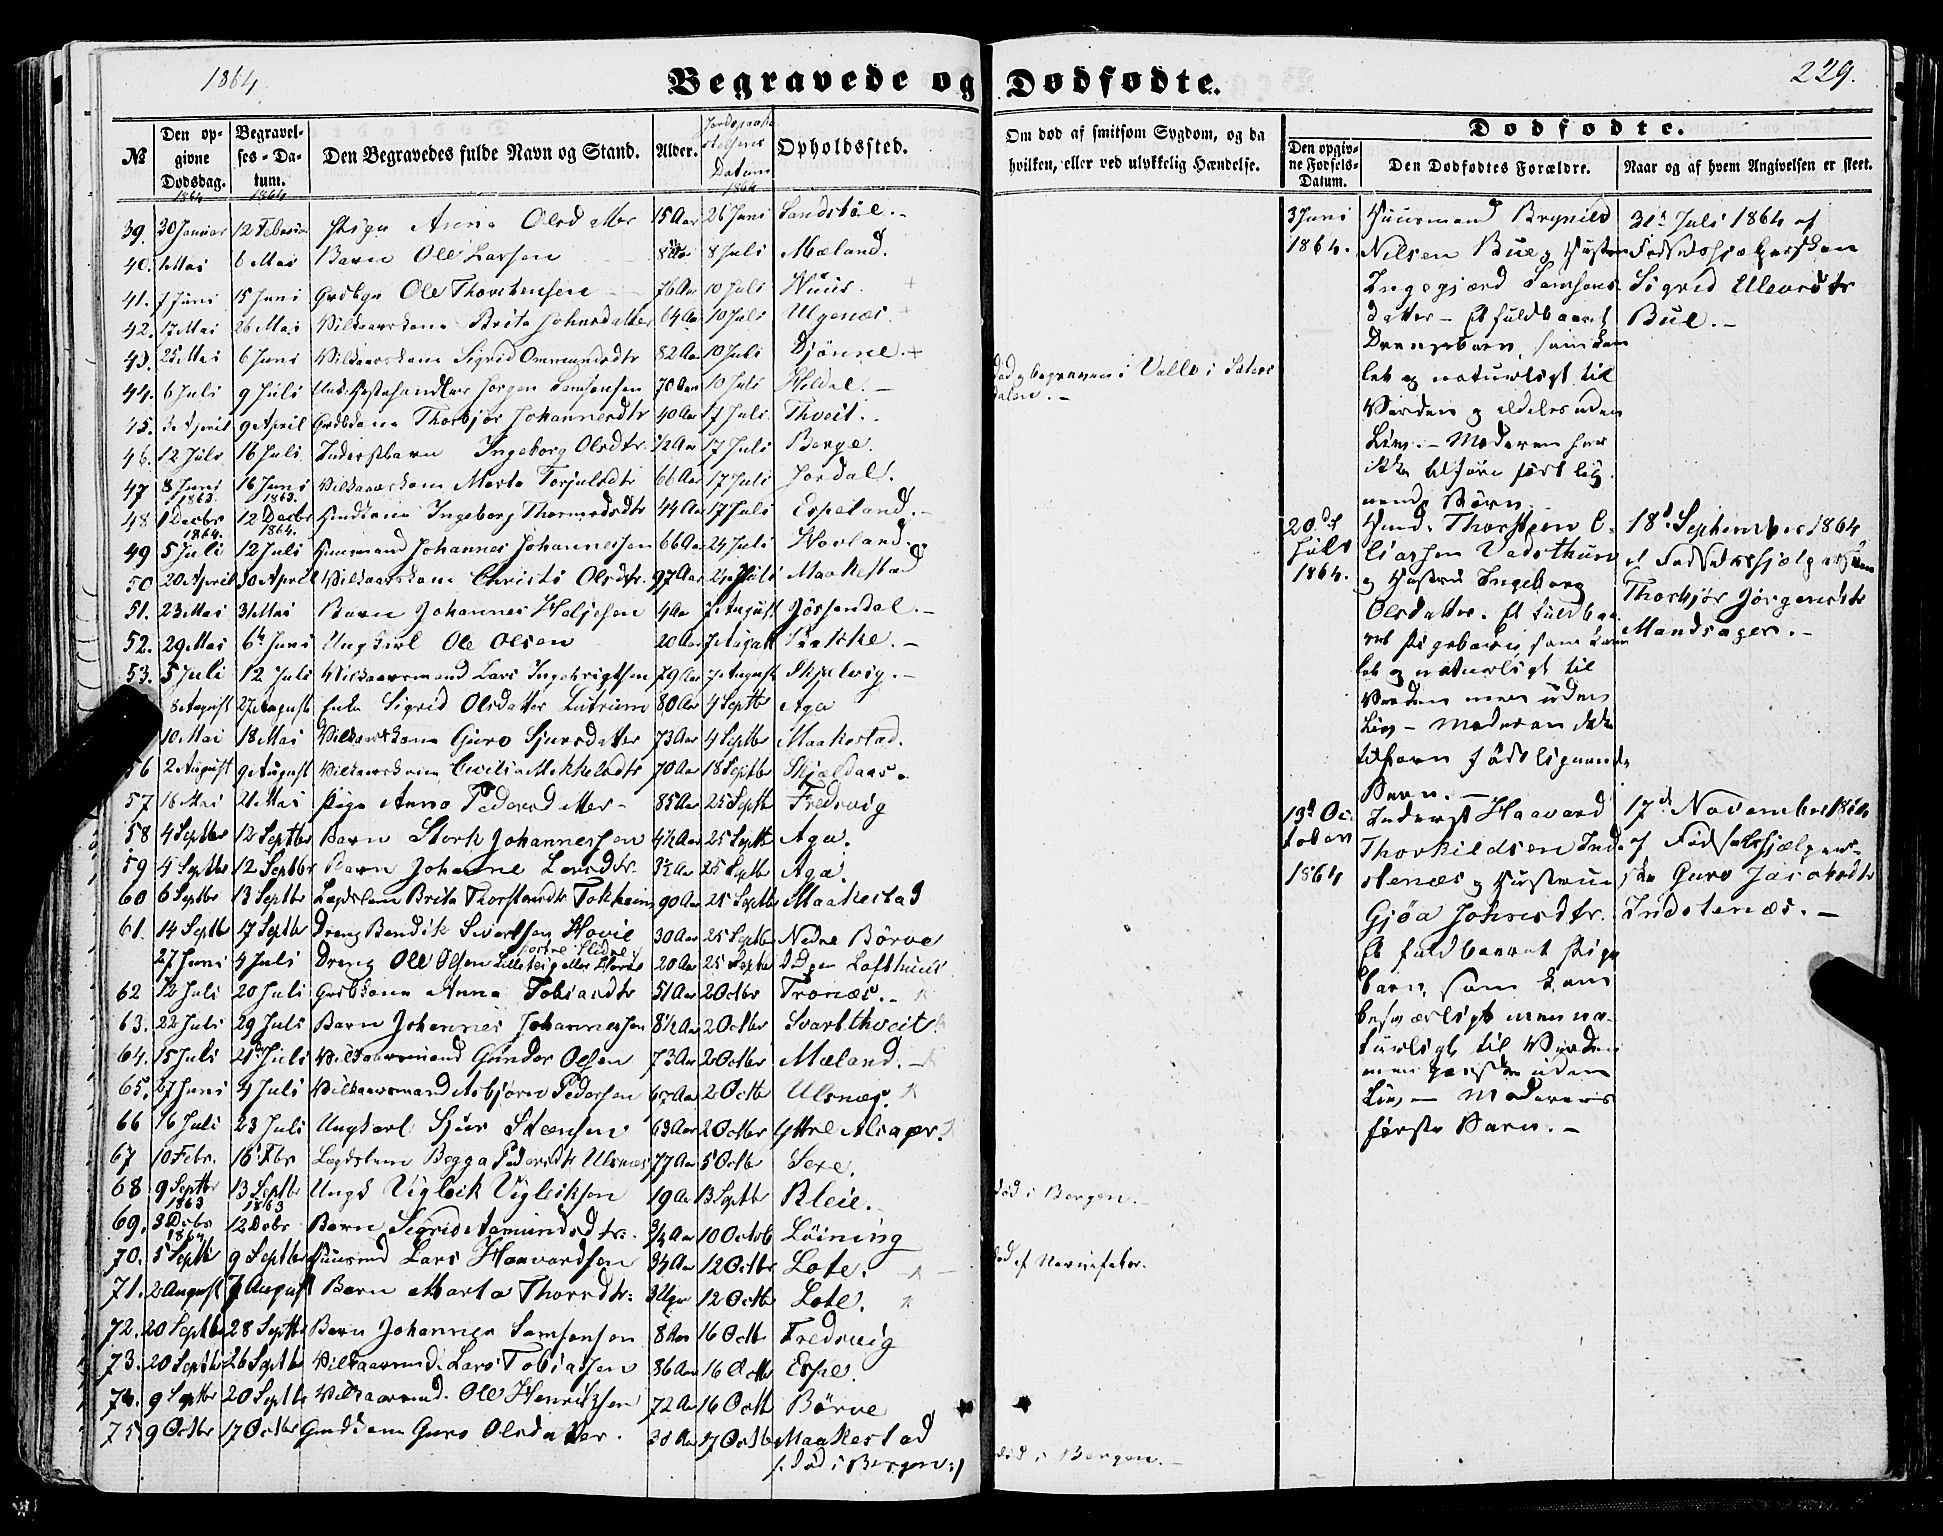 1864.
Begravede og Dødfødte.
229.
№
Den opgivne Dødsdag.
1864
Begravelses-Datum.
1864
Den Begravedes fulde Navn og Stand.
Alder.
Jordpaakastelsens Datum
1864
Opholdssted.
Om død af smitsom Sygdom, og da hvilken, eller ved ulykkelig Hændelse.
Dødfødte.
Den opgivne Fødsels-Datum.
Den Dødfødtes Forældre.
Naar og af hvem Angivelsen er skeet.
39. 30 Januar 12 Februar Pige Anna Olsdatter 15 Aar 26 Juni Sandstøl.-
40. 1 Mai 6 Mai Barn Ole Larsen 8 Aar 8 Juli Mæland.
41. 7 Juni 15 Juni Ole Thorstensen 76 Aar 10 Juli Nuus.
42. 17 Mai 26 Mai Vilkaarskone Brita Johnsdatter 64 Aar 10 Juli Ulgenæs.
43. 25 Mai 6 Juni Vilkaarskone Sigrid Ommundsdtr 82 Aar 10 Juli Djønne.
44. 6 Juli 9 Juli Hestehandler Jørgen Samsonsen 70 Aar 10 Juli Hildal.- død og begraven i Valle i Sætersdalen.-
45. 3 April 9 April Grdbkone Thorbjør Johannesdtr 40 Aar 17 Juli Thveit.
46. 12 Juli 16 Juli Inderstbarn Ingeborg Olsdtr. 1/2 Aar 17 Juli Berge.
47 8 Juni 16 Juni Vilkaarskone Marta Torjulsdtr 66 Aar 17 Juli Jordal.
1863. 1863.
48. 1 Decbr 12 Decbr Ingeborg Thormodsdtr 44 Aar 17 Juli Espeland.-
1864. 1864.
49 5 Juli 12 Juli Huusmand Johannes Johannessen 66 Aar 24 Juli Hovland.
50 20 April 30 April Vilkaarskone Christi Olsdtr. 97 Aar 24 Juli Maakestad
51. 23 Mai 31 Mai Barn Johannes Heljesen 4 Aar 7 August Jøssendal.-
52. 29 Mai 6te Juni Ungkarl Ole Olsen 20 Aar 7 August
53. 5 Juli 12 Juli Vilkaarsmand Lars Ingebrigtsen 79 Aar 7 August Skjelvig.-
August 27 August Enke Sigrid Olsdatter Lutrum 80 Aar 4 Septbr Aga
10 Mai 18 Mai Vilkaarskone Guro Sjursdatter 73 Aar 4 Septbr Maakestad.
56 2 August 9 August Vilkaarskone Cicilia Mikkelsdtr 70 Aar 18 Septbr Skjældaas.
57 16 Mai 21 Mai Pige Anna Pedersdatter- 85 Aar 25 Septbr Fredvig
58 4 Septbr 12 Septbr Barn Stork Johannessen 4 1/2 Aar 25 Septbr Aga.
59 4 Septbr 12 Septbr Barn Johanne Larsdtr. 25 Septbr Aga.
60 6 Septbr 13 Septbr Lægdslem Brita Thorstensdtr Tokheim 90 Aar 25 Septbr Maakestad
61. 14 Septbr 17 Septbr Dreng Bendik Sivertsen Hovie 30 Aar 25 Septbr Nedre Børve
27 Juni 4 Juli Dreng Ole Olsen 20 Aar 25 Septbr Lofthuus
62 12 Juli 20 Juli Grdbkone Anna Tobiasdtr 51 Aar 2 Octbr Tronæs.-
63. 22 Juli 29 Juli Barn Johannes Johannessen 8 1/2 Aar 2 Octbr Svartthveit.
64. 15 Juli 21de Juli Vilkaarsmand Gunder Olsen 73 Aar 2 Octbr Mæland.-
65. 27 Juni 4 Juli Vilkaarsmand Asbjørn Pedersen 67 Aar 2 Octbr Ulsnæs.
66 16 Juli 23 Juli Ungkarl Sjur Steensen 63 Aar 2 Octbr Yttre Alsager.
67 10 Febr. 16 Febr Lægdslem Begga Pedersdtr Ulsnæs 77 Aar 5 Octbr Sexe.
68. 9 Septbr 13 Septbr Ungk Vigleik Vigleiksen 19 Aar 13 Septbr Kleie. død i Bergen.
1863 1863
69. 3 Decbr 12 Decbr Barn Sigrid Amundsdtr. 3/4 Aar 10 Octob Løining
1864
70. 5 Septbr 9 Septbr Huusmd Lars Haavardsen 34 Aar 12 Octbr Lote. død af Nervefeber.
71. 2 August 7 August Barn Marta Thorsdtr: 3 Uger 12 Octbr Lote.
72. 20 Septbr 28 Septbr Barn Johannes Samsonsen 8 Aar 16 Octbr Fredvig
73. 20 Septbr 26 Septbr Vilkaarsmd. Lars Tobiassen 86 Aar 16 Octbr Espe.
74. 9 Septbr 20 Septbr Vilkaarsmd. Ole Henriksen 72 Aar 16 Octbr Børve
75 9 Octbr 17 Octbr Guro Olsdatter. 38 Aar 17 Octbr Maakestad
/: død i Bergen :/ død i Bergen.-
3 Juni
1864.
Huusmand Brynild
Nilsen Bue og Hustru
Ingegjærd Samsons
datter - Et fuldbaaret
Drengebarn, som kom
let og naturligt til
Verden og aldeles uden
Liv.- Moderen har
ikke tilforn født lig
nende Børn.
31te Juli 1864 af
Fødselshjælpersken
Sigrid
Bue.-
20de
Juli
1864.
Thorsten E-
liassen
og Hustru Ingeborg
Olsdatter. Et fuldbaa
ret Pigebarn, som kom
let og naturligt til
Verden men uden
Liv - Moderen ikke
tilforn født lignende
Barn.-
18de September 1864
af Fødselshjælpersken
Thorbjør Jørgensdtr
Mandsager.-
13de Oc-
tober
1864
Inderst Haavard
Thorkildsen Ind-
stenæs og Hustru
Gjøa Johnsdtr.
Et fuldbaaret Pige
barn, som kom
besværligt men na-
turligt til Verden
men ganske uden
Liv - Moderens
første Barn.-
17de November 1864
af Fødselshjælper-
sken Guro Jacobsdtr
Indstenæs.-